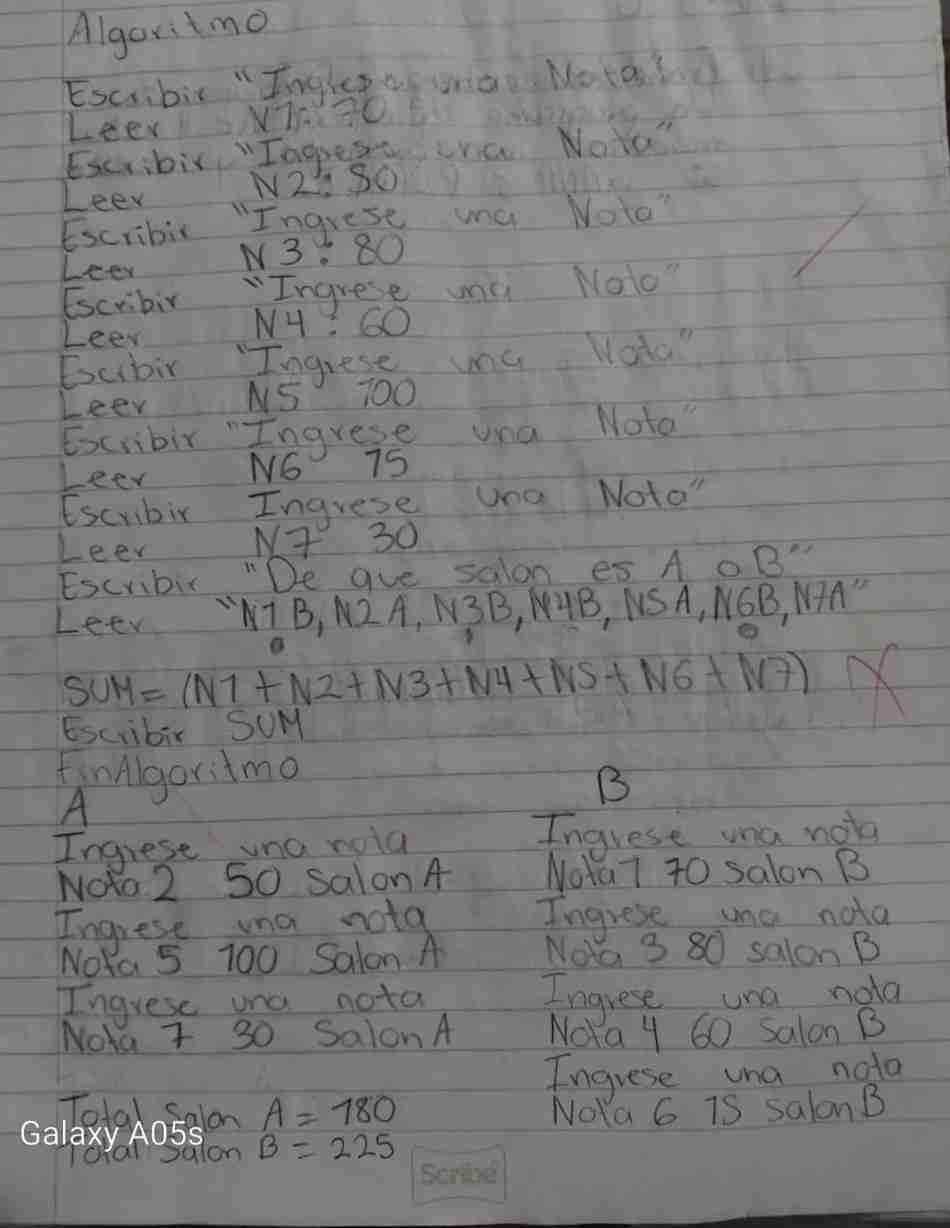 Algoritmo
Escribir "Ingrese una Nota"
Leer N1: 70
Escribir "Ingrese una Nota"
Leer N2: 50
Escribir "Ingrese una Nota"
Leer N3: 80
Escribir "Ingrese una Nota"
Leer N4: 60
Escribir "Ingrese una Nota"
Leer N5 100
Escribir "Ingrese una Nota"
Leer N6 15
Escribir Ingrese una Nota"
Leer N7 30
Escribir "De que salon es A o B"
Leer "N1B, N2A, N3B, N4B, N5A, N6B, N7A"
SUM= (N1+N2+N3+N4+N5+N6+N7)
Escribir SUM
FinAlgoritmo
A
Ingrese una nota
Nota 2 50 Salon A
Ingrese una nota
Nota 5 100 Salon A
Ingrese una nota
Nota 7 30 Salon A
Total Salon A = 180
Total Salon B = 225
B
Ingrese una nota
Nota 1 70 salon B
Ingrese una nota
Nota 3 80 salon B
Ingrese una nota
Nota 4 60 salon B
Ingrese una nota
Nota 6 15 salon B
Galaxy A05s
Scribe